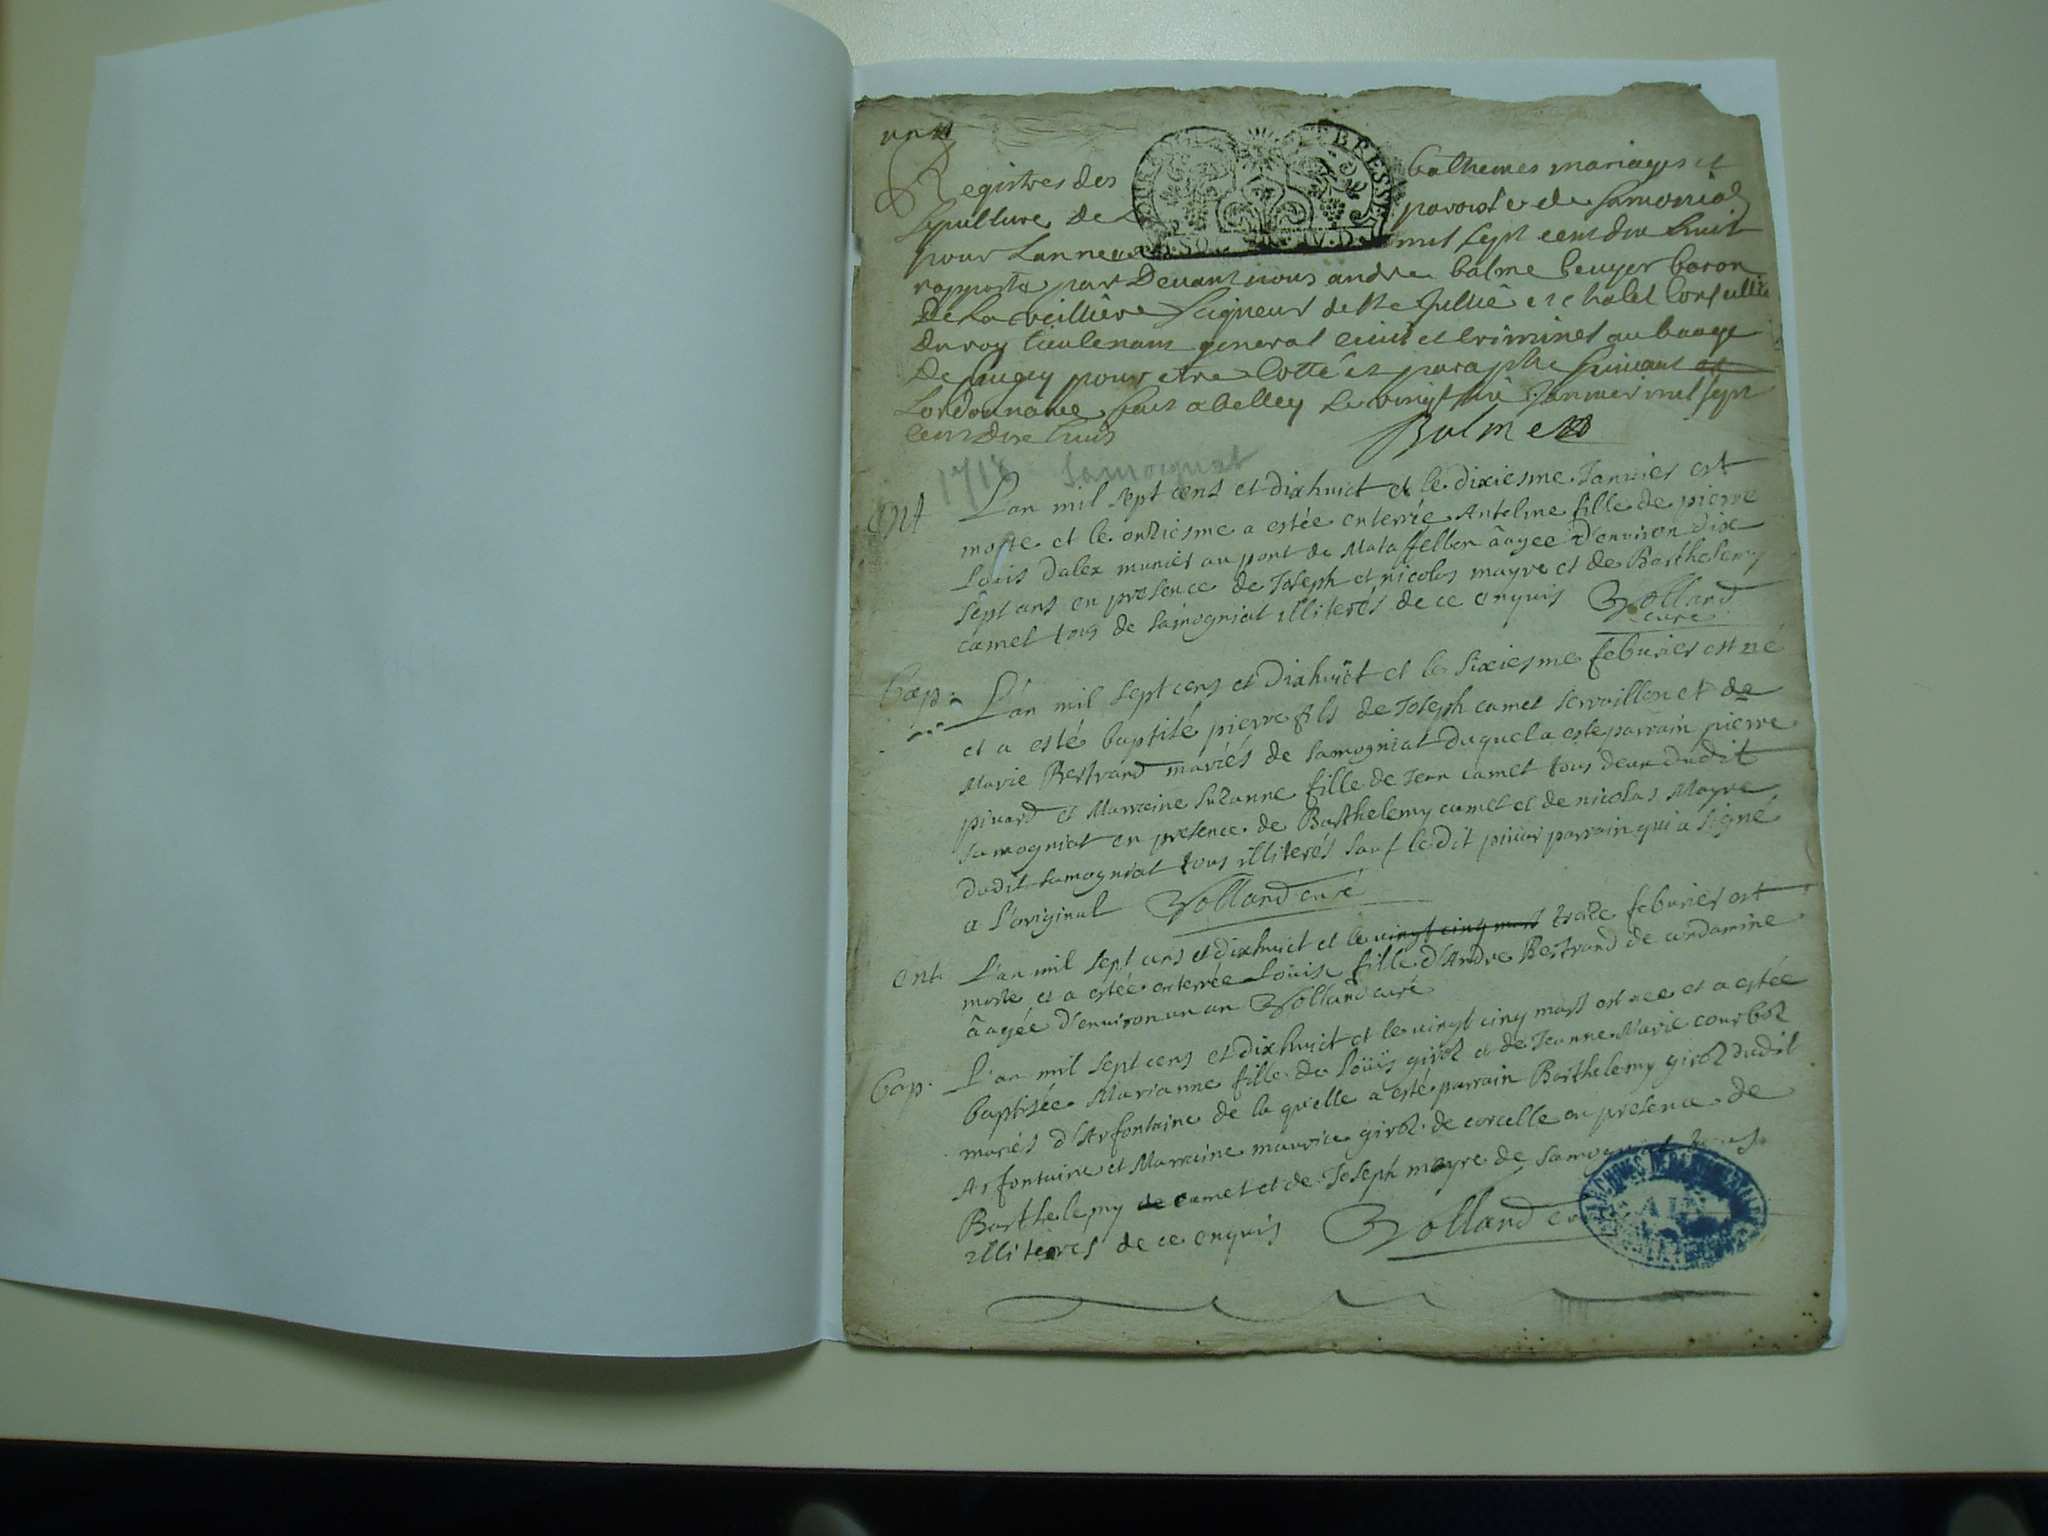 un
Registres des bathemes mariages et
sepulture de la paroisse de samoniad
pour Lannee mil sept cent dix huit
rapporte par Devant nous andre balme Ecuyer baron
De La veilliere Seigneur de Ste Jullie et chalet Conseille
Du roy lieutenant general civil et criminel au baage
De bugey pour etre Cotté et paraphé suivant et
Lordonnance fait a belley Le vingt janvier mil sept
cent dix huit
Balme
1718 Samognat
ent L'an mil sept cens et dixhuict et le dixiesme Janvier est
morte et le onziesme a estée enterrée Antelme fille de pierre
Louis Dalex munier au pont de Mataffellon âagée d'environ dix
sept ans en presence de Joseph et nicolas mayre et de Barthelemy
camet tous de samogniat illiterés de ce enquis Volland
curé
bap. L'an mil sept cens et dixhuict et le sixiesme feburier est né
et a esté baptisé pierre fils de Joseph camet servillon et de
Marie Bertrand mariés de samogniat duquel a esté parrain pierre
pivard et Marreine Suzanne fille de Jean camet tous deux dudit
samogniat en presence de Barthelemy camet et de nicolas Mayre
dudit samogniat tous illiterés sauf le dit pivar parrain qui a signé
a l'original Volland curé
ent. L'an mil sept cens et dixhuict et le vingt cinq mars treize feburier est
morte et a estée enterrée Loüise fille d'Andre Bertrand de condamine
âagée d'environ un an Volland curé
bap. L'an mil sept cens et dixhuict et le vingt cinq mars est née et a estée
baptisée Marianne fille de Loüis girod et de Jeanne Marie courboz
mariés d'Arfontaine de la quelle a esté parrain Barthelemy girod dudit
Arfontaine et Marreine maurice girod de corcelle en presence de
Barthelemy de camet et de Joseph mayre de samogniat tous
illiterés de ce enquis Volland curé
ARCHIVES DEPARTEMENTALES
AIN